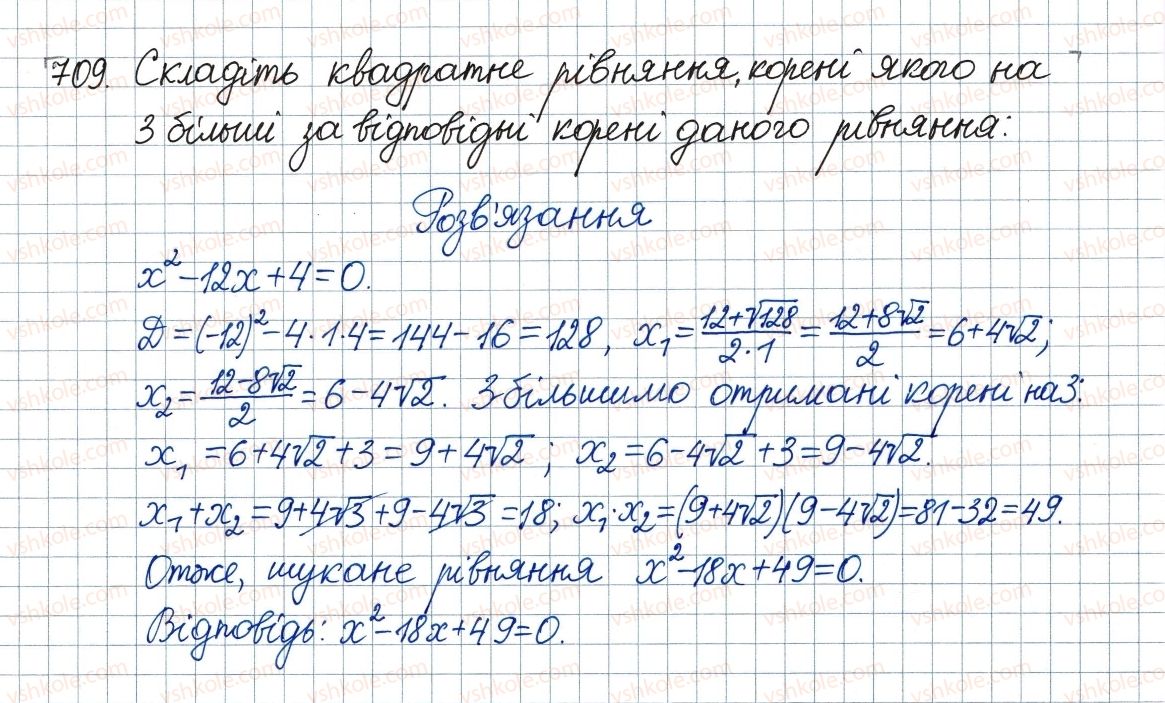 709. Складіть квадратне рівняння, корені якого на
3 більші за відповідні корені даного рівняння:
Розв'язання
x² - 12x + 4 = 0.
D = (-12)² - 4·1·4 = 144 - 16 = 128, x₁ = (12+√128)/(2·1) = (12+8√2)/2 = 6+4√2;
x₂ = (12-8√2)/2 = 6-4√2. Збільшимо отримані корені на 3:
x₁ = 6+4√2+3 = 9+4√2; x₂ = 6-4√2+3 = 9-4√2.
x₁+x₂ = 9+4√3+9-4√3 = 18; x₁·x₂ = (9+4√2)(9-4√2) = 81-32 = 49.
Отже, шукане рівняння x²-18x+49=0.
Відповідь: x²-18x+49=0.